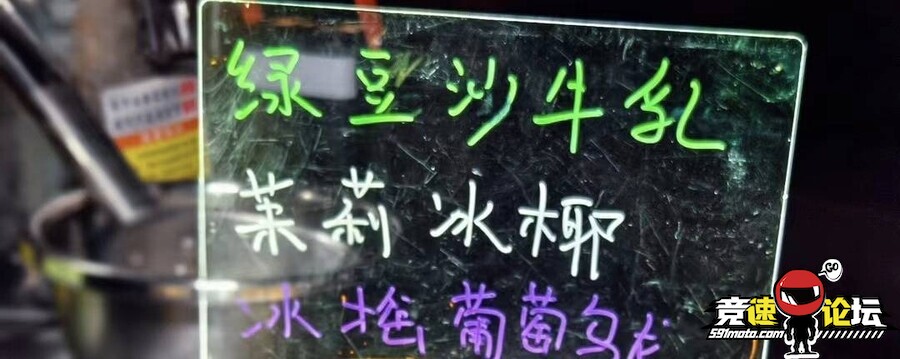 绿豆沙牛乳
茉莉冰椰
冰 葡萄乌龙
GO
竞速论坛
591moto.com